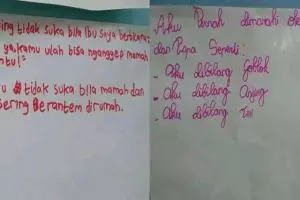 ing tidak suka bila Ibu saya berkata:
yakamu ulah bisa nganggep mamah
ntu!"
u tidak suka bila mamah dan
sering Berantem dirumah.
Aku Pernah dimarahi ole
dan Papa Seperti:
- Aku dibilang Goblok
- Aku dibilang Anjing
- Aku dibilang